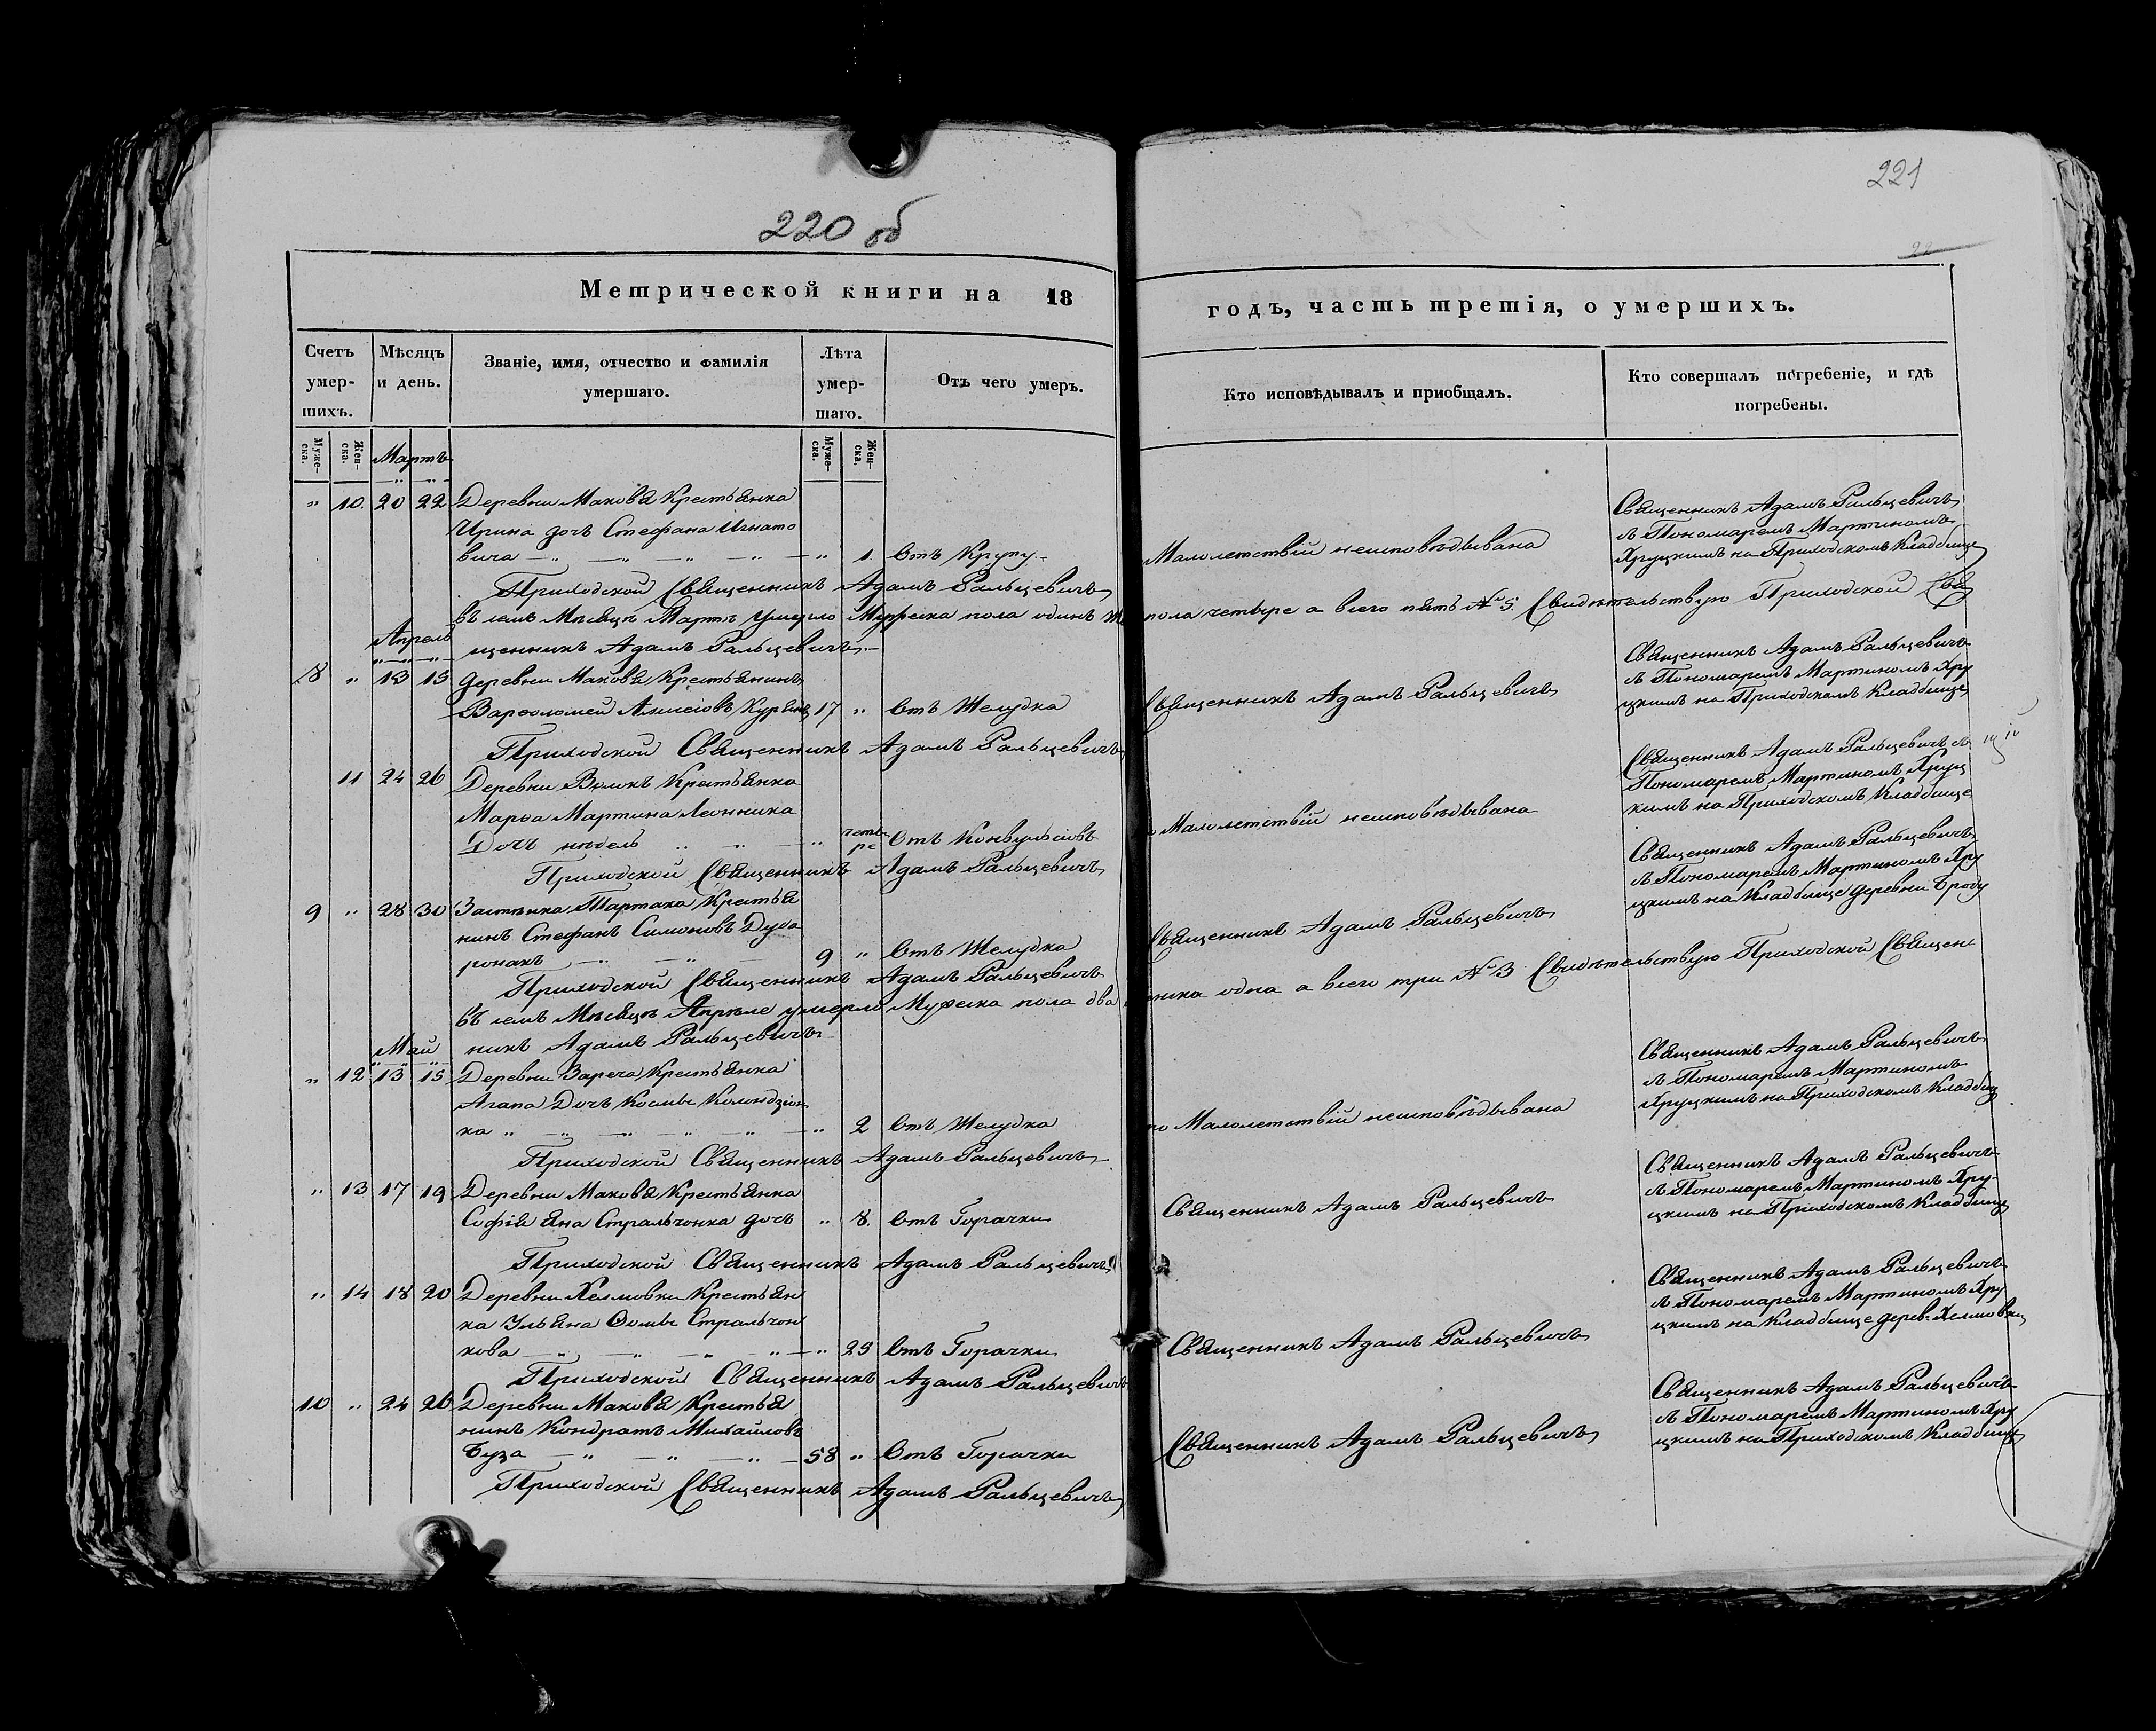 220 об
221
Метрической книги на 18
годъ, часть третія, о умершихъ.
Счетъ умер-шихъ.
Мѣсяцъ и день.
Званіе, имя, отчество и фамилія умершаго.
Лѣта умер-шаго.
Отъ чего умеръ.
Кто исповѣдывалъ и приобщалъ.
Кто совершалъ погребеніе, и гдѣ погребены.
Муже-ска.
Жен-ска.
Муже-ска.
Жен-ска.
Мартъ
" 10. 20 22 Деревни Маковѧ Крестьѧнка
Ирина дочъ Стефана Игнато
вича " 1. Отъ Крупу
Малолетствій неисповѣдывана
Священникъ Адамъ Ральцевичъ
съ Пономаремъ Мартиномъ
Хруцкимъ на Приходскомъ Кладбище
Приходской Священникъ Адамъ Ральцевичъ
Въ семъ Мѣсяцѣ Мартѣ умерло Мужеска пола одинъ
пола четыре а всего пять № 5. Свидѣтельствую Приходской Свя
щенникъ Адамъ Ральцевичъ
Апрель
8 " 13 15 деревни Маковя Крестьянинъ
Варѳоломей Алексіовъ Курянъ 17 " Отъ Желудка
Священникъ Адамъ Ральцевичъ
Священникъ Адамъ Ральцевичъ
съ Пономаремъ Мартиномъ Хру
цкимъ на Приходскомъ Кладбище
Приходской Священникъ Адамъ Ральцевичъ
11 24 26 Деревни Крестьянка
Марѳа Мартина Леонника
Дочъ недель " четы ре Отъ Конвульсіовъ
Малолетствій неисповѣдывана
Священникъ Адамъ Ральцевичъ съ
Пономаремъ Мартиномъ Хруц
кимъ на Приходскомъ Кладбище
Приходской Священникъ Адамъ Ральцевичъ
9 " 28 30 Застѣнка Тартака Крестья
нинъ Стефанъ Симоновъ Дуба
ронакъ 9 " Отъ Желудка
Священникъ Адамъ Ральцевичъ
Священникъ Адамъ Ральцевичъ
съ Пономаремъ Мартиномъ Хру
цкимъ на Кладбище деревни Броду
Приходской Священникъ Адамъ Ральцевичъ
Въ семъ Мѣсяцѣ Апрѣле умерло Мужеска пола два
одна а всего три № 3 Свидѣтельствую Приходской Священ
никъ Адамъ Ральцевичъ
Май
" 12 13 15 Деревни Зареча Крестьянка
Агапа Дочъ Космы Колондзіон
ка " 2 Отъ Желудка
по Малолетствій неисповѣдывана
Священникъ Адамъ Ральцевичъ
съ Пономаремъ Мартиномъ
Хруцкимъ на Приходскомъ Кладбищ
Приходской Священникъ Адамъ Ральцевичъ
" 13 17 19 Деревни Маковя Крестьянка
Софія Яна Стральчонка дочъ " 8. Отъ Горачки
Священникъ Адамъ Ральцевичъ
Священникъ Адамъ Ральцевичъ
съ Пономаремъ Мартиномъ Хру-
цкимъ на Приходскомъ Кладбище
Приходской Священникъ Адамъ Ральцевичъ
" 14 18 20 Деревни Хелмовки Крестьян
ка Ульяна Ѳомы Стральчон
кова " 23 Отъ Горачки
Священникъ Адамъ Ральцевичъ
Священникъ Адамъ Ральцевичъ
съ Пономаремъ Мартиномъ Хру
цкимъ на Кладбище дерев. Хелмовки
Приходской Священникъ Адамъ Ральцевичъ
10 " 24 26 Деревни Маковя Крестья
нинъ Кондратъ Михайловъ
Буза 58 " Отъ Горачки
Священникъ Адамъ Ральцевичъ
Священникъ Адамъ Ральцевичъ
съ Пономаремъ Мартиномъ Хру
цкимъ на Приходскомъ Кладбище
Приходской Священникъ Адамъ Ральцевичъ